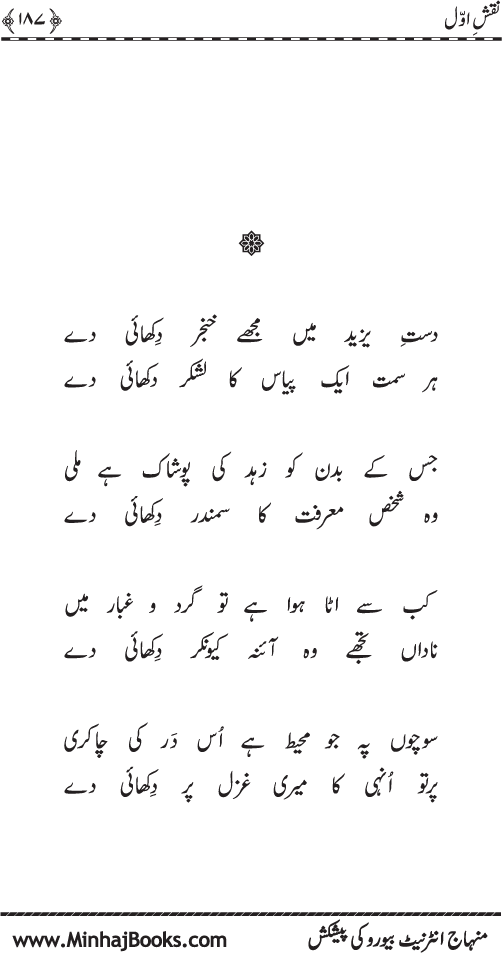 نقشِ اوّل
﴿۱۸۷﴾
دستِ یزید میں مجھے خنجر دِکھائی دے
ہر سمت ایک پیاس کا لشکر دکھائی دے
جس کے بدن کو زہد کی پوشاک ہے ملی
وہ شخص معرفت کا سمندر دِکھائی دے
کب سے اٹا ہوا ہے تو گرد و غبار میں
ناداں تجھے وہ آئنہ کیونکر دِکھائی دے
سوچوں پہ جو محیط ہے اُس دَر کی چاکری
پرتو اُنہی کا میری غزل پر دِکھائی دے
منہاج انٹرنیٹ بیورو کی پیشکش
www.MinhajBooks.com